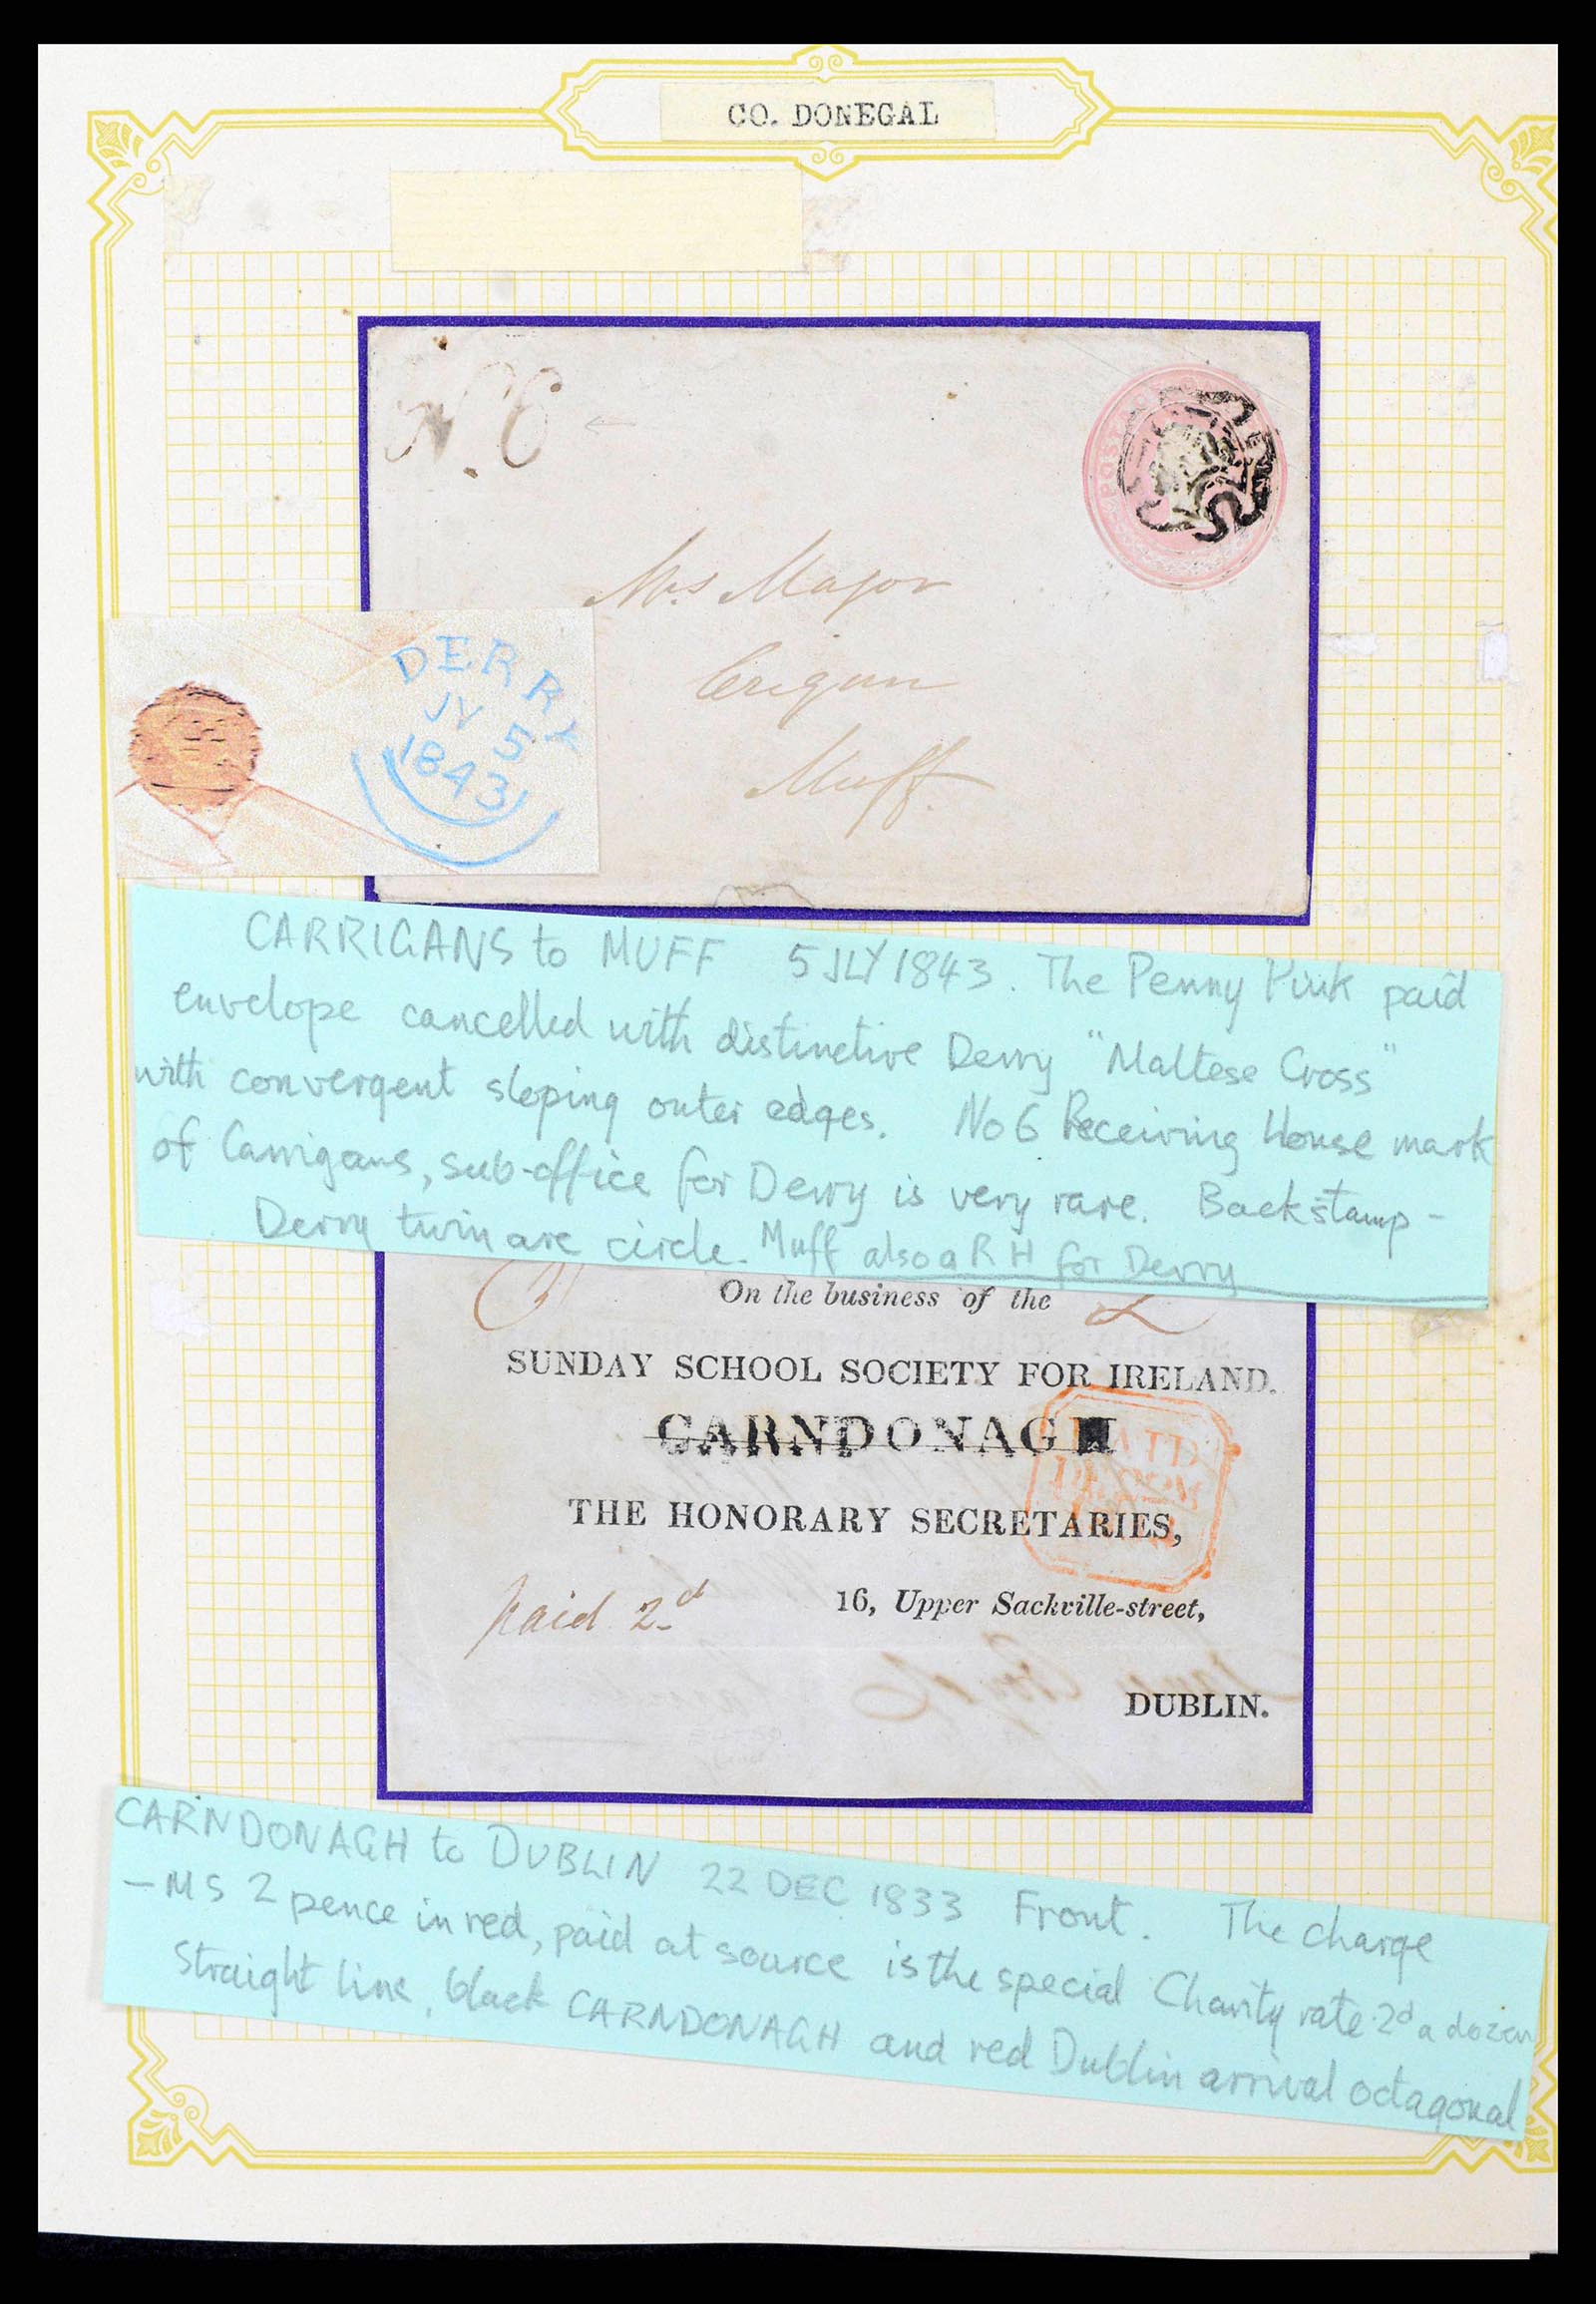 CO. DONEGAL
No. 6
POSTAGE
Mrs Major
Crigan
Muff
DERRY
JY 5
1843
CARRIGANS to MUFF 5 JLY 1843. The Penny Pink paid
envelope cancelled with distinctive Derry "Maltese Cross"
with convergent sloping outer edges. No 6 Receiving House mark
of Carrigans, sub-office for Derry is very rare. Backstamp -
Derry twin arc circle. Muff also a RH for Derry
On the business of the
2
SUNDAY SCHOOL SOCIETY FOR IRELAND.
CARNDONAGH
PAID
THE HONORARY SECRETARIES,
paid 2d
16, Upper Sackville-street,
DUBLIN.
CARNDONAGH to DUBLIN 22 DEC 1833 Front. The charge
- MS 2 pence in red, paid at source is the special Charity rate 2d a dozen
Straight line, black CARNDONAGH and red Dublin arrival octagonal